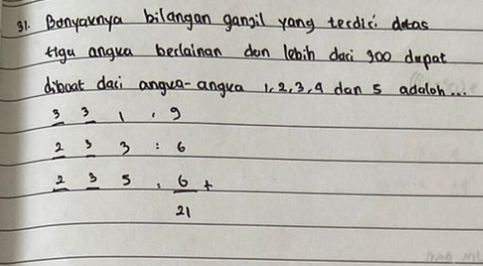 31. Banyaknya bilangan ganjil yang terdiri datas
tiga angka berlainan dan lebih dari 300 dapat
dibuat dari angka-angka 1, 2, 3, 4 dan 5 adalah...
3 3 1 : 9
2 3 3 : 6
2 3 5 : 6 +
21